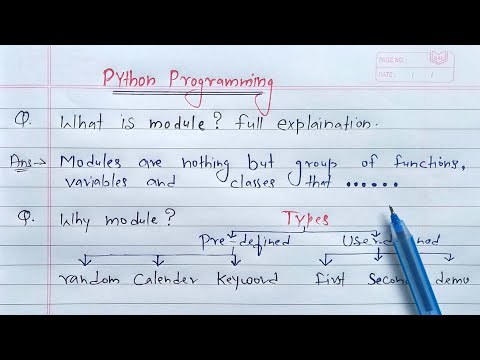 PAGE NO.
DATE: / /
Python Programming
Q. What is module? full explaination.
Ans → Modules are nothing but group of functions,
variables and classes that ......
Q. Why module? Types
Pre-defined User-defined
random Calender Keyword first Second demo